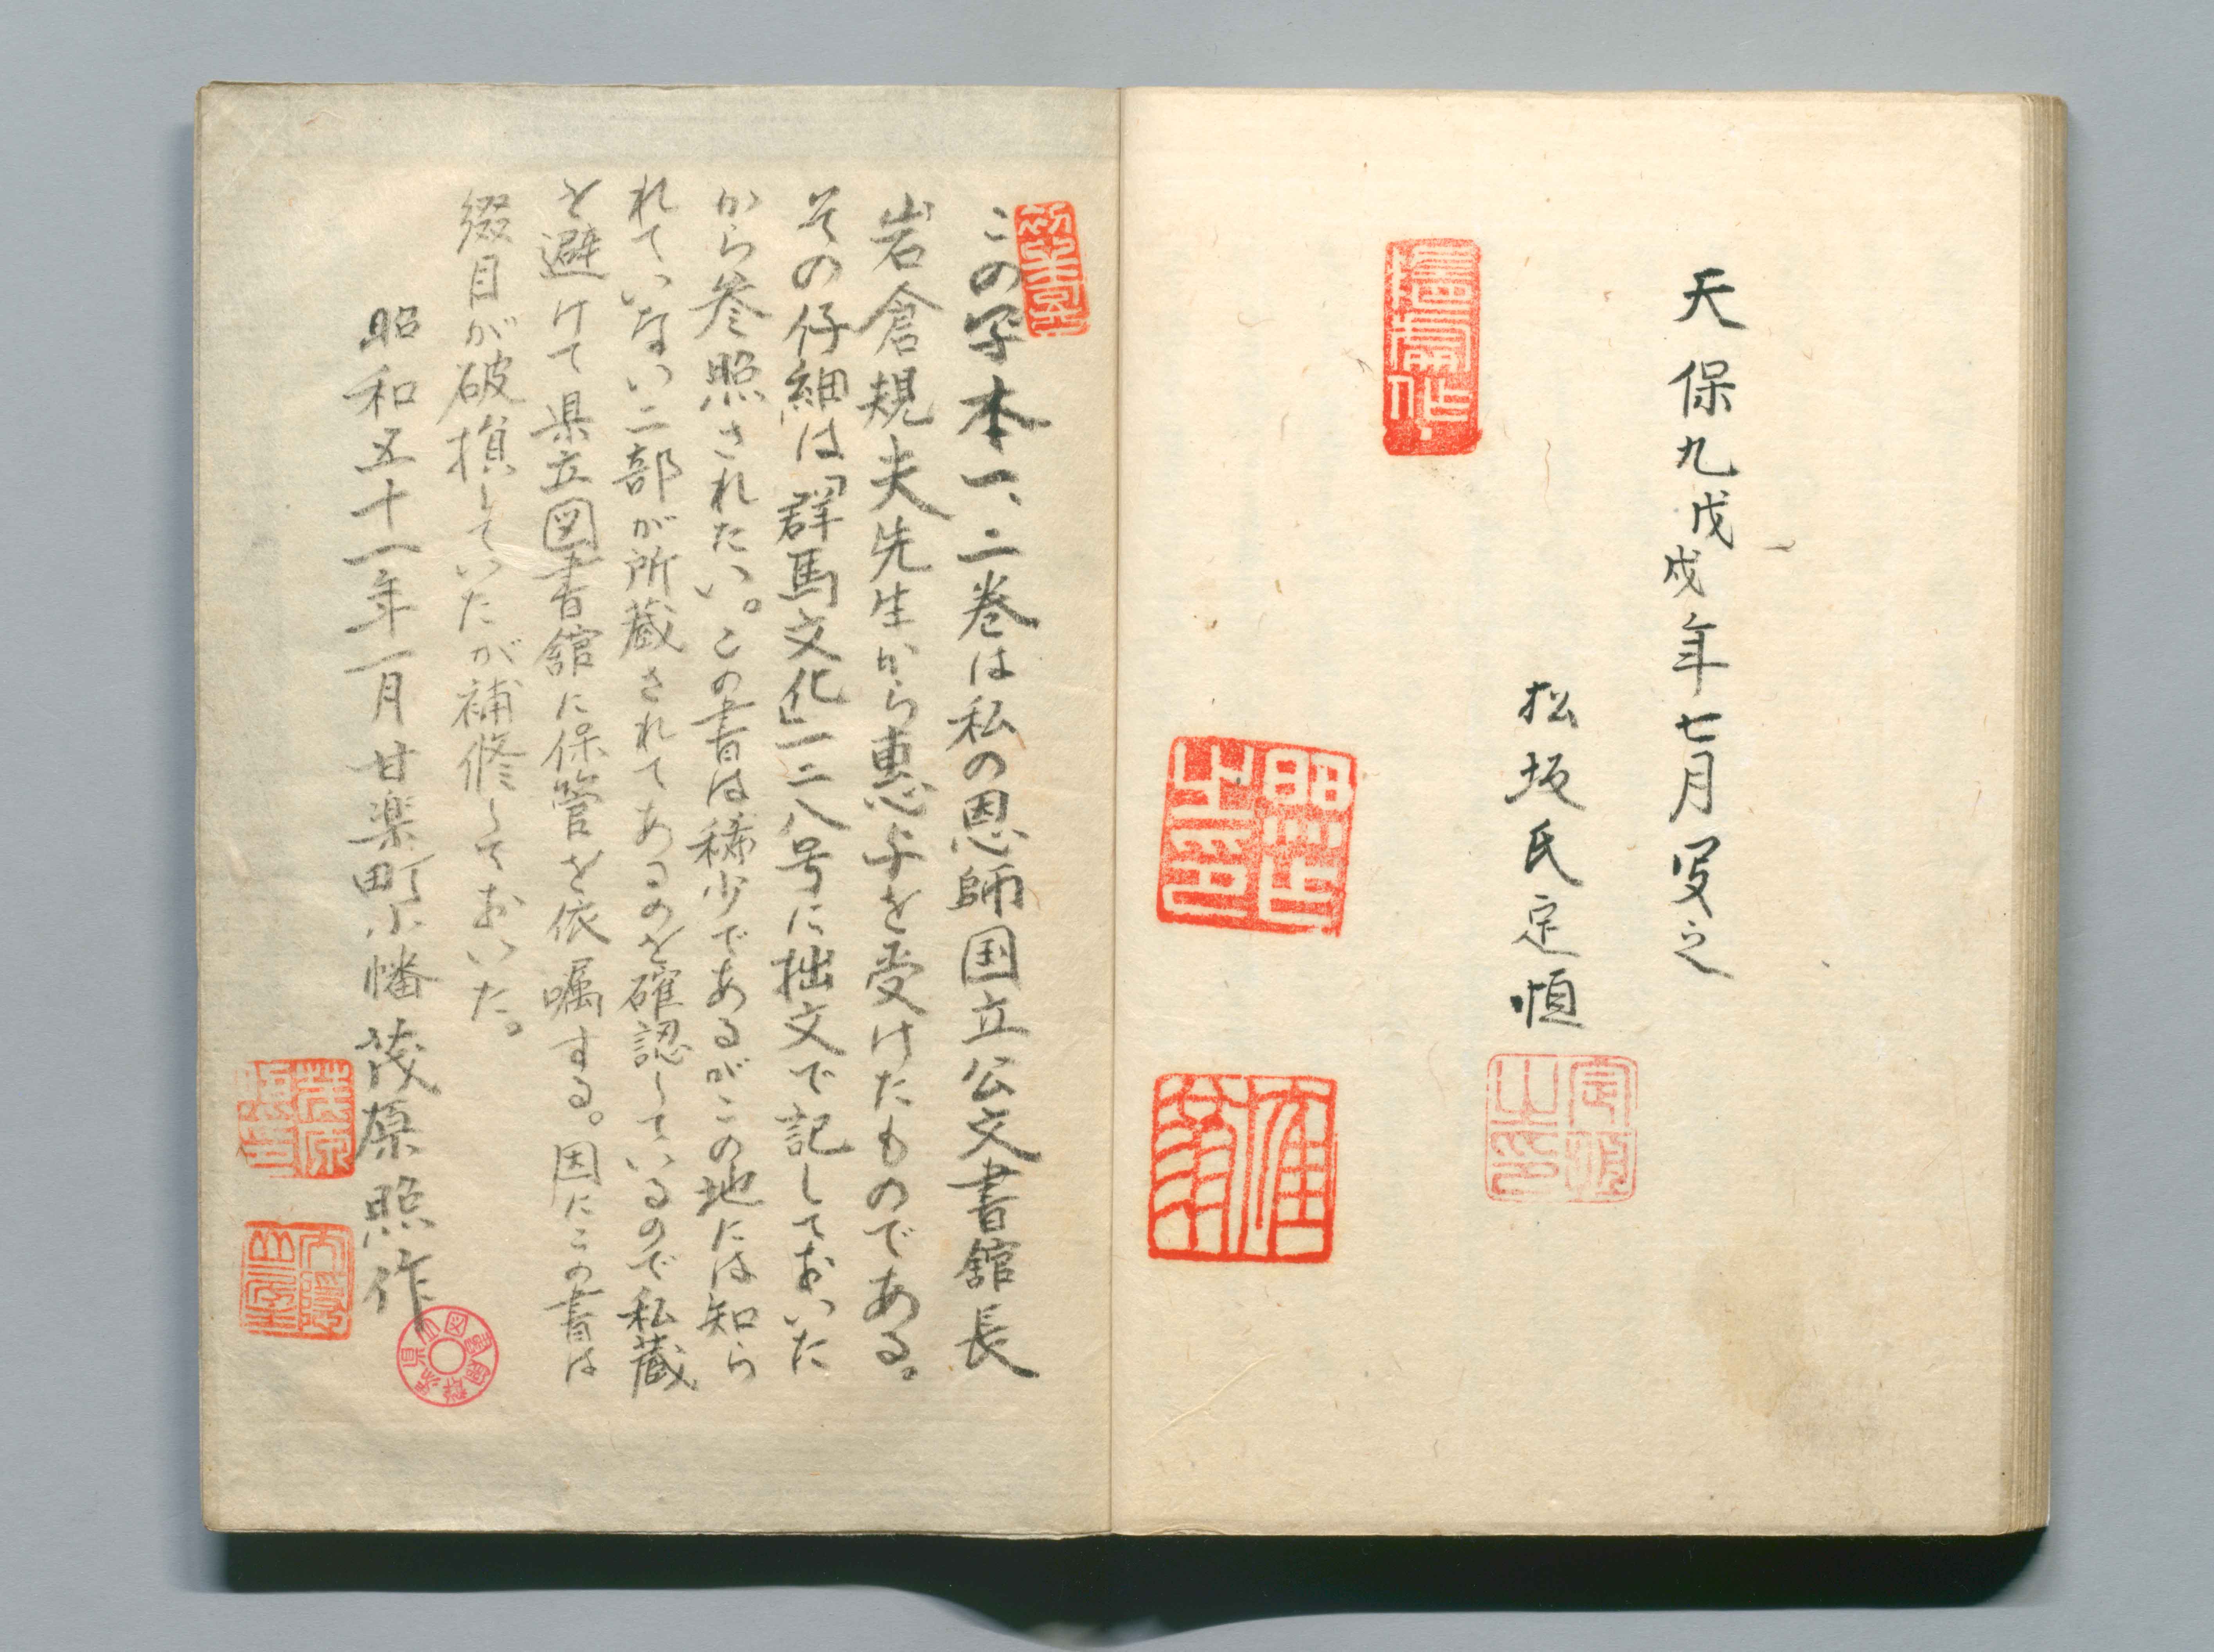 天保九戊戌年七月写之
松坂氏定恒
定恒之印
照作之印
この写本一、二巻は私の恩師国立公文書館長
岩倉規夫先生から恵与を受けたものである。
その仔細は「群馬文化」一三八号に拙文で記しておいた
から参照されたい。この書は稀少であるがこの地には知ら
れていない二部が所蔵されてあるのを確認しているので私蔵
を避けて県立図書館に保管を依嘱する。因にこの書は
綴目が破損していたが補修しておいた。
昭和五十一年一月甘楽町小幡 茂原照作
群馬県立図書館